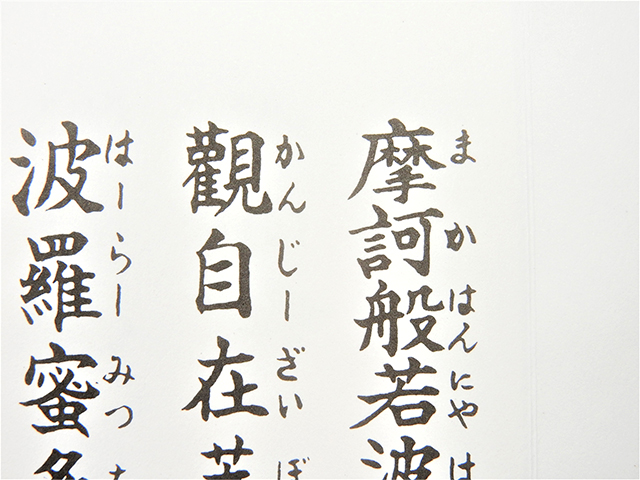 摩訶般若波
まかはんにゃは
觀自在菩
かんじーざいぼ
波羅蜜多
はーらーみつた